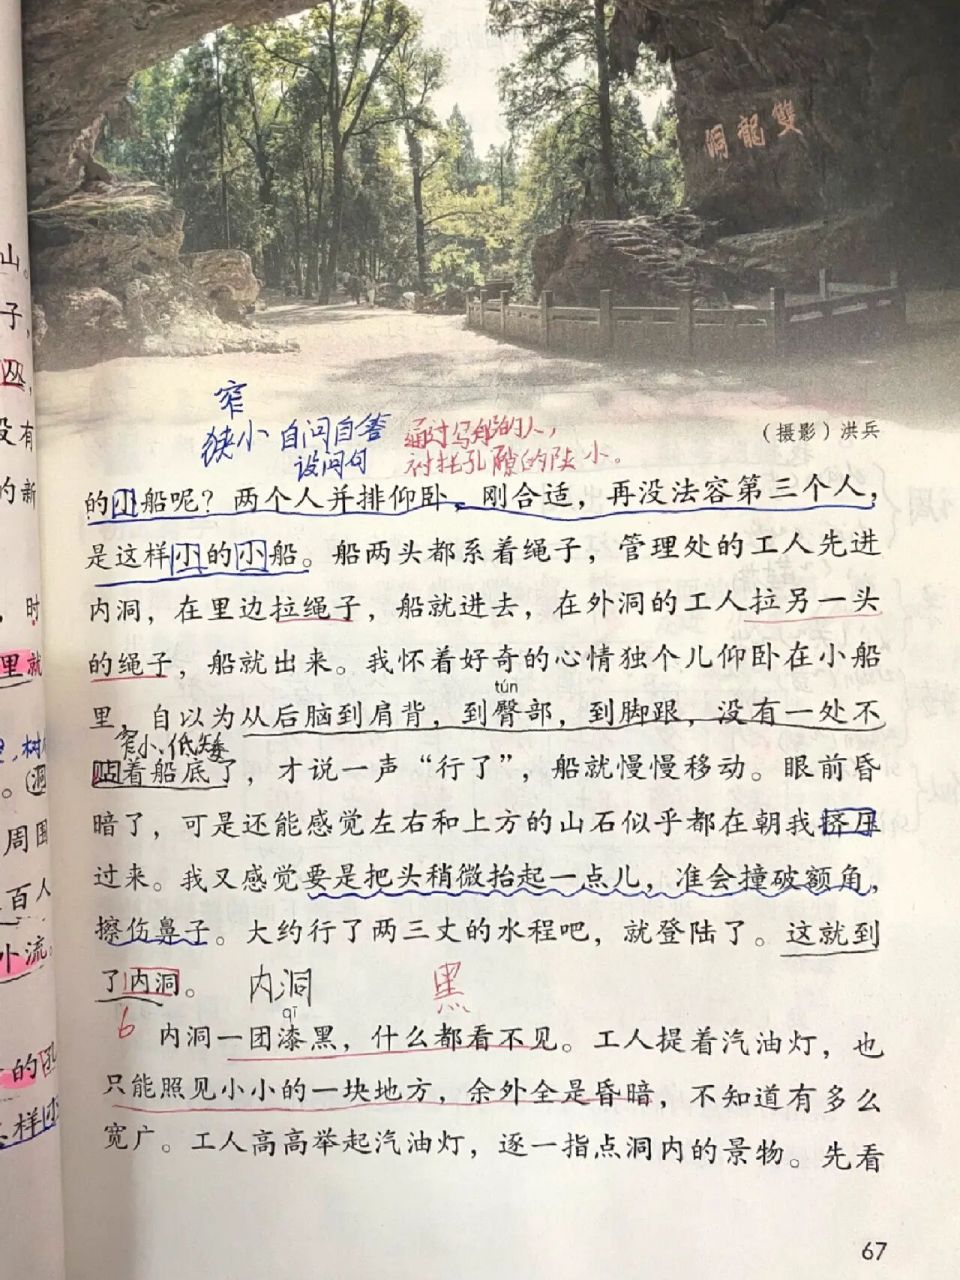 雙龍洞
(摄影)洪兵
窄
狭小 自问自答
设问句
通过写船的人,
衬托孔隙的狭小。
的小船呢?两个人并排仰卧,刚合适,再没法容第三个人,
是这样小的小船。船两头都系着绳子,管理处的工人先进
内洞,在里边拉绳子,船就进去,在外洞的工人拉另一头
的绳子,船就出来。我怀着好奇的心情独个儿仰卧在小船
tún
里,自以为从后脑到肩背,到臀部,到脚跟,没有一处不
窄小、低矮
贴着船底了,才说一声“行了”,船就慢慢移动。眼前昏
暗了,可是还能感觉左右和上方的山石似乎都在朝我挤压
过来。我又感觉要是把头稍微抬起一点儿,准会撞破额角,
擦伤鼻子。大约行了两三丈的水程吧,就登陆了。这就到
了内洞。
内洞 黑
qī
6
内洞一团漆黑,什么都看不见。工人提着汽油灯,也
只能照见小小的一块地方,余外全是昏暗,不知道有多么
宽广。工人高高举起汽油灯,逐一指点洞内的景物。先看
67
山。
子,
没有
的新
时
里就
周围
百人
小流。
的孔
样